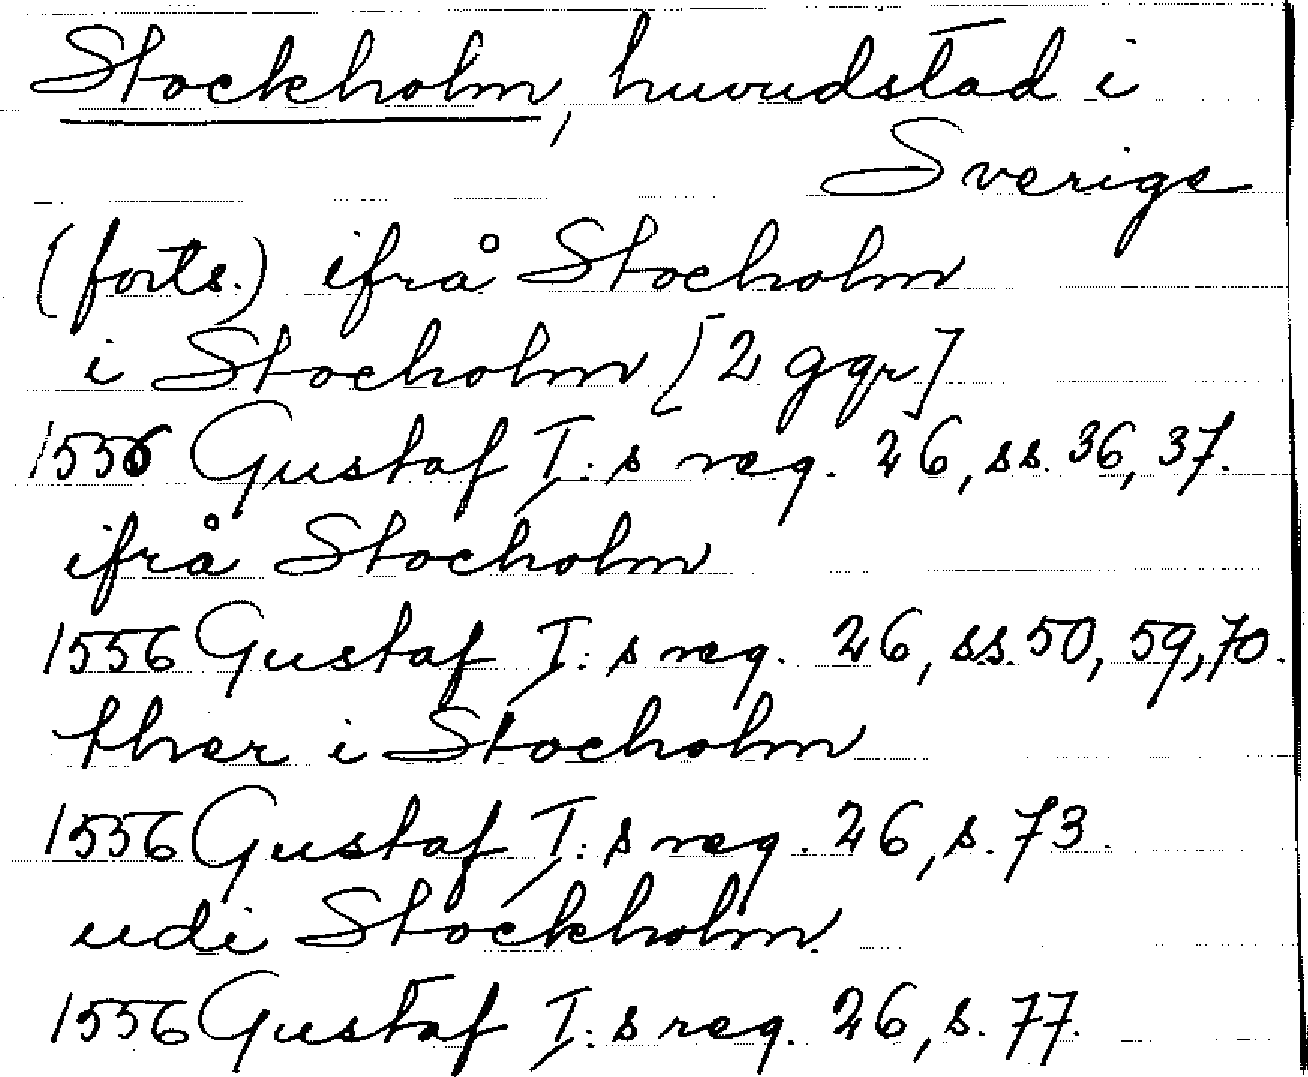 Stockholm, huvudstad i
Sverige
(forts.) ifrå Stocholm
i Stocholm [2 ggr]
1556 Gustaf I:s reg. 26, ss. 36, 37.
ifrå Stocholm
1556 Gustaf I:s reg. 26, ss. 50, 59, 70.
ther i Stocholm
1556 Gustaf I:s reg. 26, s. 73.
udi Stockholm.
1556 Gustaf I:s reg. 26, s. 77.